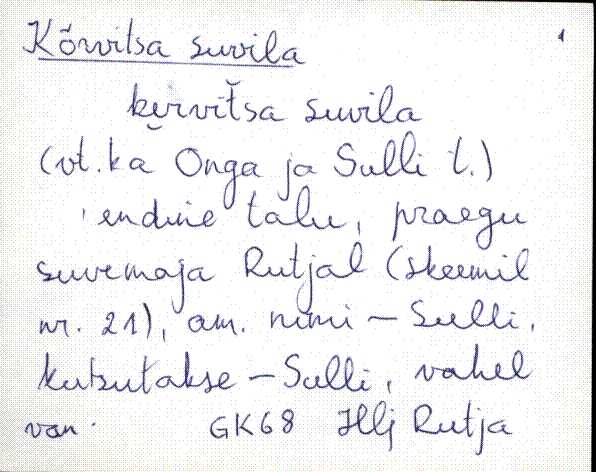 Kõrvitsa suvila 1
ke̮rvit̆sa suvila
(vt. ka Onga ja Sulli t.)
endine talu, praegu
suvemaja Rutjal (skeemil
nr. 21), am. nimi - Sulli,
kutsutakse - Sulli, vahel
van. GK68 Hlj Rutja